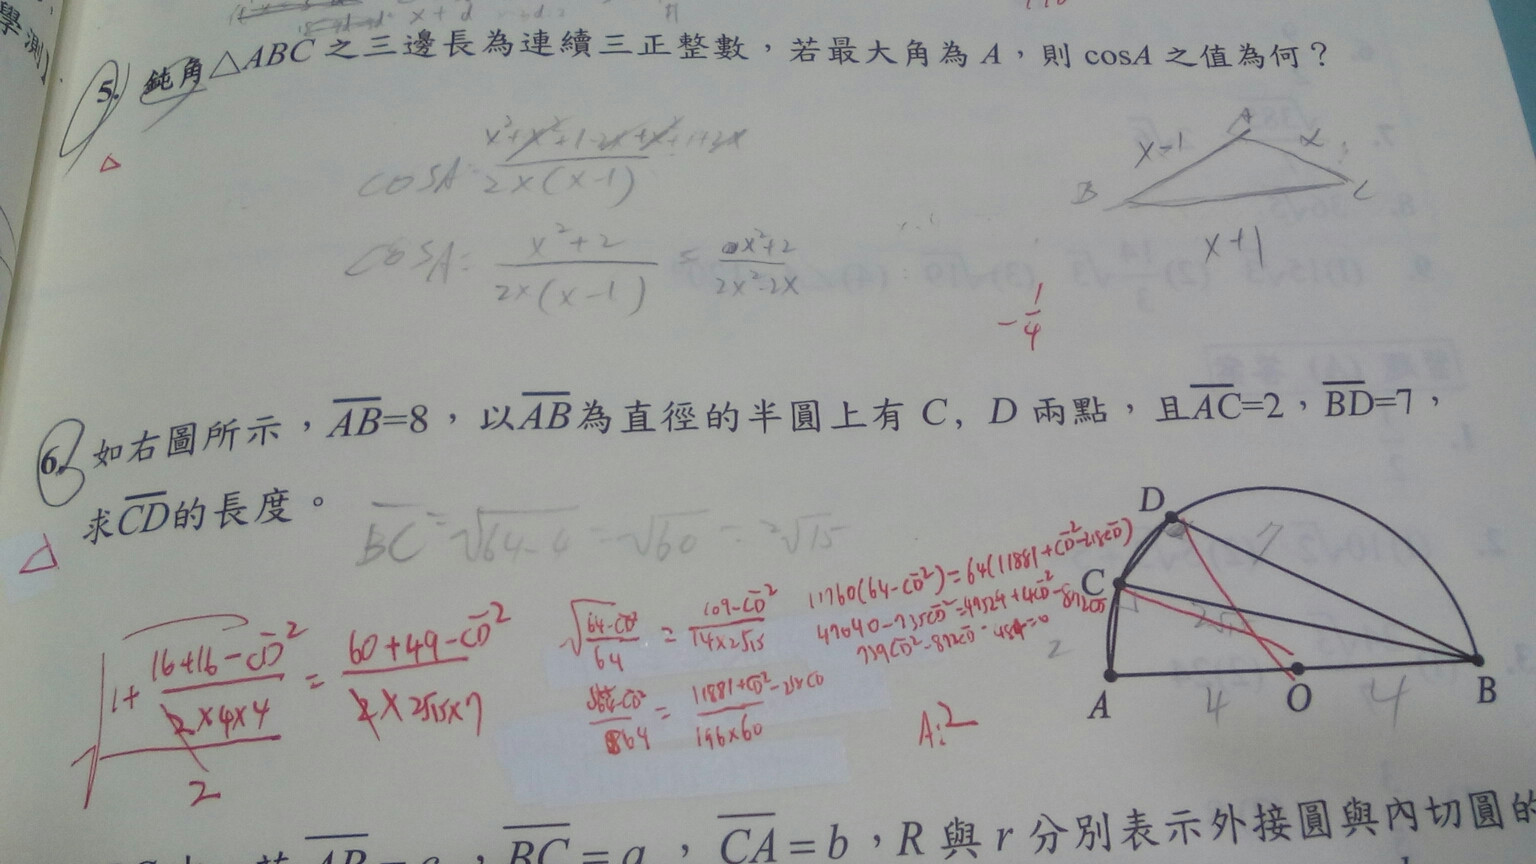 5. 鈍角△ABC 之三邊長為連續三正整數，若最大角為 A，則 cosA 之值為何？
△
cosA = x²+x²+1-2x+x²+1+2x / 2x(x-1)
cosA = x²+2 / 2x(x-1) = x²+2 / 2x²-2x
A
x-1
x
B
C
x+1
-1/4
6. 如右圖所示，AB=8，以AB為直徑的半圓上有 C, D 兩點，且AC=2，BD=7，
求CD的長度。
△
BC = √64-4 = √60 = 2√15
√(1+ 16+16-CD² / 2×4×4) / 2 = 60+49-CD² / 2×2√15×7
√64-CD² / 64 = 109-CD² / 14×2√15
64-CD² / 64 = 11881+CD²-218CD / 196×60
11760(64-CD²)=64(11881+CD²-218CD)
A:2
D
7
C
2√15
2
A
4
O
4
B
AB = c，BC = a，CA = b，R 與 r 分別表示外接圓與內切圓的